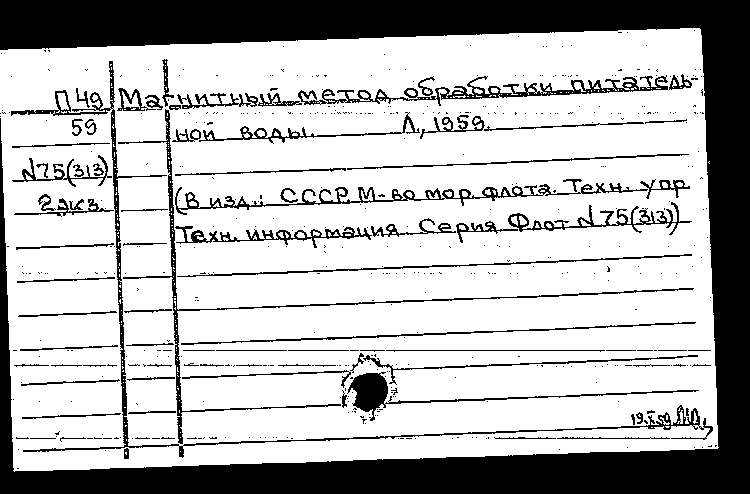 П49 Магнитный метод обработки питатель-
59 ной воды. Л., 1959.
N75(313)
2 экз. (В изд.: СССР. М-во мор. флота. Техн. упр
Техн. информация. Серия Флот N75(313))
19.X.59